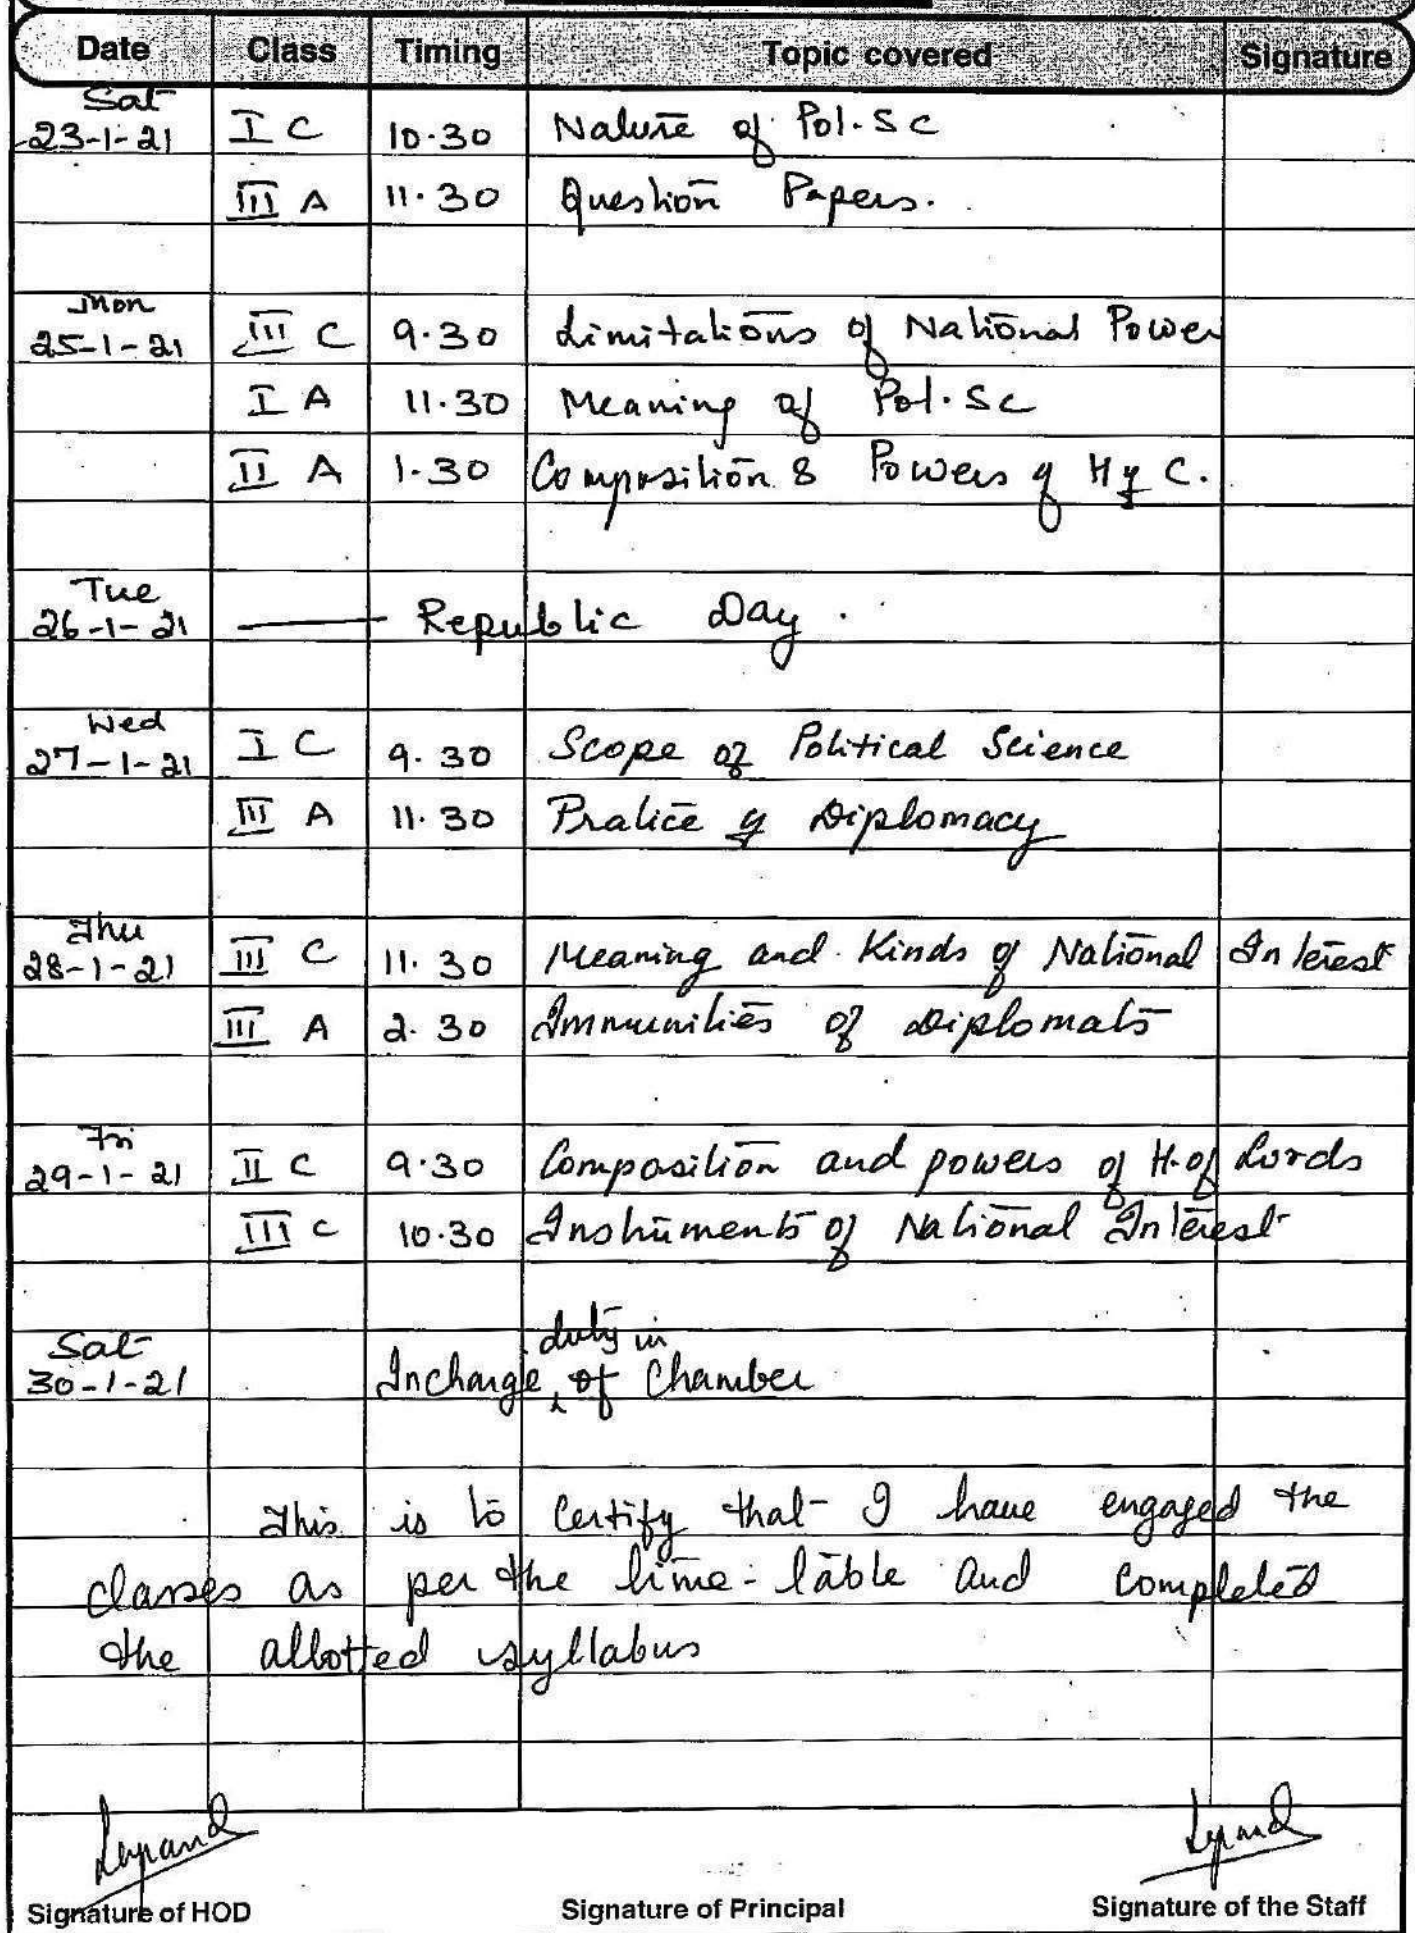 Date Class Timing Topic covered Signature
Sat
23-1-21 I C 10.30 Nature of Pol.Sc
III A 11.30 Question Papers.
Mon
25-1-21 III C 9.30 Limitations of National Power
I A 11.30 Meaning of Pol.Sc
II A 1.30 Composition & Powers of H of C.
Tue
26-1-21 Republic Day.
Wed
27-1-21 I C 9.30 Scope of Political Science
III A 11.30 Pratice of Diplomacy
Thu
28-1-21 III C 11.30 Meaning and Kinds of National Interest
III A 2.30 Immunities of Diplomats
Fri
29-1-21 II C 9.30 Composition and powers of H.of Lords
III C 10.30 Instruments of National Interest
Sat
duty in
30-1-21 Incharge of Chamber
This is to Certify that I have engaged the
classes as per the time-table and Completed
the allotted syllabus
Signature of HOD Signature of Principal Signature of the Staff